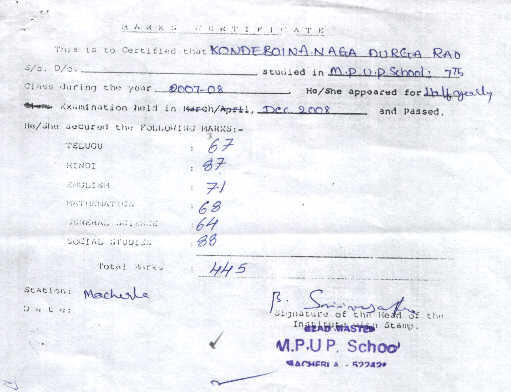 MARKS CERTIFICATE
This is to Certified that KONDEBOINA NAGA DURGA RAO
S/o. D/o. studied in M.P.U.P School; 7th
Class during the year 2007-08 He/She appeared for Halfyearly
Examination held in March/April, Dec 2008 and Passed.
He/She secured the FOLLOWING MARKS:-
TELUGU : 67
HINDI : 87
ENGLISH : 71
MATHEMATICS : 68
GENERAL SCIENCE : 64
SOCIAL STUDIES : 88
Total Marks : 445
Station: Macherla
Date:
B.
Signature of the Head of the
Institute with Stamp.
HEAD MASTER
M.P.U.P. School
MACHERLA - 52242